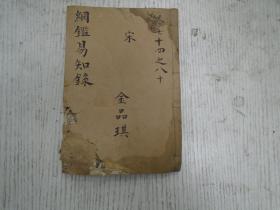 十四之八十
宋
金品琪
綱鑑易知錄